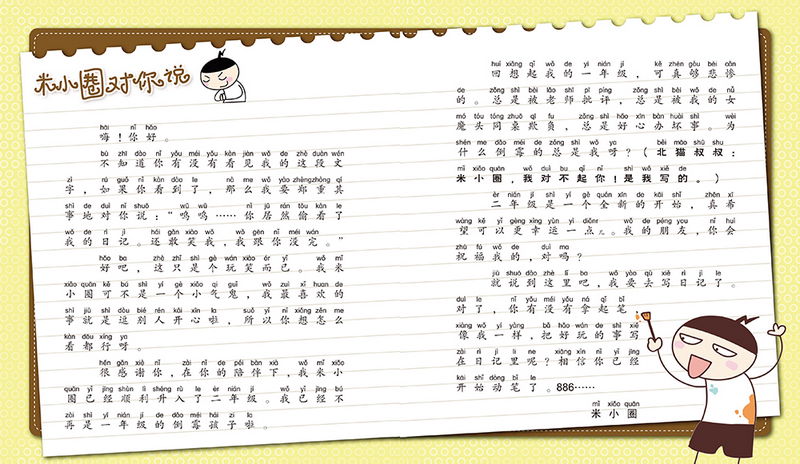 米小圈对你说
hāi nǐ hǎo
嗨!你好。
bù zhī dào nǐ yǒu méi yǒu kàn jiàn wǒ de zhè duàn wén
不知道你有没有看见我的这段文
zì rú guǒ nǐ kàn dào le nà me wǒ yào zhèngzhòng qí
字,如果你看到了,那么我要郑重其
shì de duì nǐ shuō wū wū nǐ jū rán tōu kàn le
事地对你说:“呜呜……你居然偷看了
wǒ de rì jì hái gǎn xiào wǒ wǒ gēn nǐ méi wán
我的日记。还敢笑我,我跟你没完。”
hǎo ba zhè zhǐ shì gè wán xiào ér yǐ wǒ mǐ
好吧,这只是个玩笑而已。我米
xiǎo quān kě bú shì yí gè xiǎo qì guǐ wǒ zuì xǐ huan de
小圈可不是一个小气鬼,我最喜欢的
shì jiù shì dòu bié rén kāi xīn la suǒ yǐ nǐ xiǎng zěn me
事就是逗别人开心啦,所以你想怎么
kàn dōu xíng ya
看都行呀。
hěn gǎn xiè nǐ zài nǐ de péi bàn xià wǒ mǐ xiǎo
很感谢你,在你的陪伴下,我米小
quān yǐ jīng shùn lì shēng rù le èr nián jí wǒ yǐ jīng bú
圈已经顺利升入了二年级。我已经不
zài shì yì nián jí de dǎo méi hái zi la
再是一年级的倒霉孩子啦。
huí xiǎng qǐ wǒ de yì nián jí kě zhēn gòu bēi cǎn
回想起我的一年级,可真够悲惨
de zǒng shì bèi lǎo shī pī píng zǒng shì bèi wǒ de nǚ
的。总是被老师批评,总是被我的女
mó tóu tóng zhuō qī fu zǒng shì hǎo xīn bàn huài shì wèi
魔头同桌欺负,总是好心办坏事。为
shén me dǎo méi de zǒng shì wǒ ya běi māo shū shu
什么倒霉的总是我呀?(北猫叔叔:
mǐ xiǎo quān wǒ duì bu qǐ nǐ shì wǒ xiě de
米小圈,我对不起你!是我写的。)
èr nián jí shì yí gè quán xīn de kāi shǐ zhēn xī
二年级是一个全新的开始,真希
wàng kě yǐ gèng xìng yùn yì diǎnr wǒ de péng you nǐ huì
望可以更幸运一点儿。我的朋友,你会
zhù fú wǒ de duì ma
祝福我的,对吗?
jiù shuō dào zhè lǐ ba wǒ yào qù xiě rì jì le
就说到这里吧,我要去写日记了。
duì le nǐ yǒu méi yǒu ná qǐ bǐ
对了,你有没有拿起笔,
xiàng wǒ yí yàng bǎ hǎo wán de shì xiě
像我一样,把好玩的事写
zài rì jì lǐ ne xiāng xìn nǐ yǐ jīng
在日记里呢?相信你已经
kāi shǐ dòng bǐ le
开始动笔了。886……
mǐ xiǎo quān
米小圈